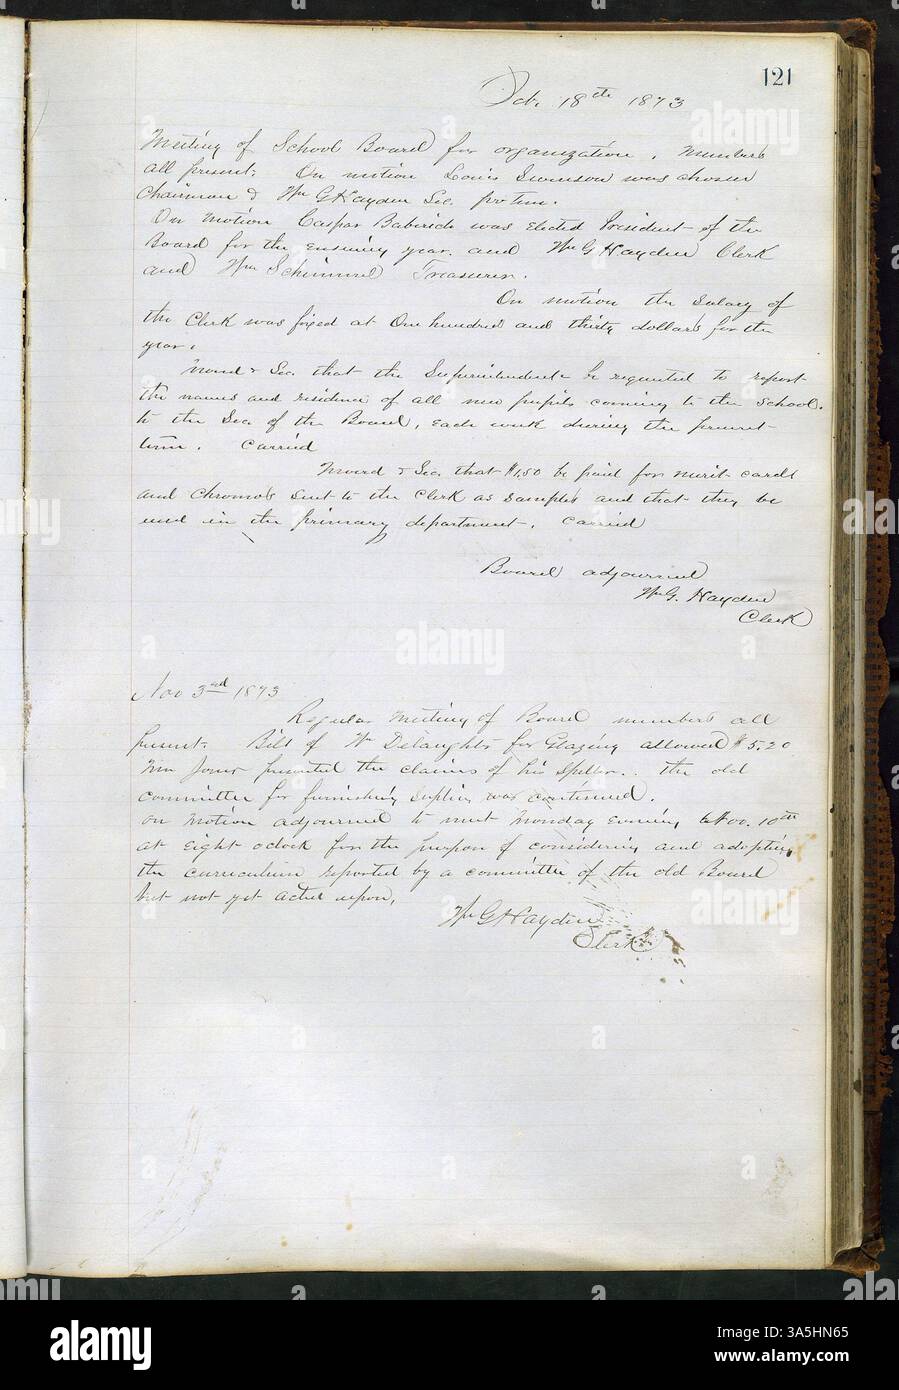 121
Oct. 18th 1873
Meeting of School Board for organization. Members
all present. On motion Louis Swenson was chosen
Chairman & Wm G Hayden Sec. pro tem.
On motion Caspar was elected President of the
Board for the ensuing year. and Wm G Hayden Clerk
and Wm Schimmel Treasurer.
On motion the Salary of
the Clerk was fixed at One hundred and thirty dollars for the
year.
Moved & Sec. that the Superintendent be requested to report
the names and residence of all new pupils coming to the School.
to the Sec. of the Board, each week during the present
term. Carried
Moved & Sec. that $1.50 be paid for merit cards
and Chromos sent to the Clerk as samples and that they be
used in the primary department. Carried
Board adjourned
Wm G. Hayden
Clerk
Nov 3rd 1873
Regular Meeting of Board members all
present. Bill of W for Glazing allowed $5.20
presented the claims of his Speller. the old
committee for furnishing supplies was continued.
on motion adjourned to meet Monday Evening Nov. 10th
at Eight oclock for the purpose of considering and adopting
the curriculum reported by a committee of the old Board
but not yet acted upon.
Wm G Hayden
Clerk
alamy
a
Image ID: 3A5HN65
www.alamy.com